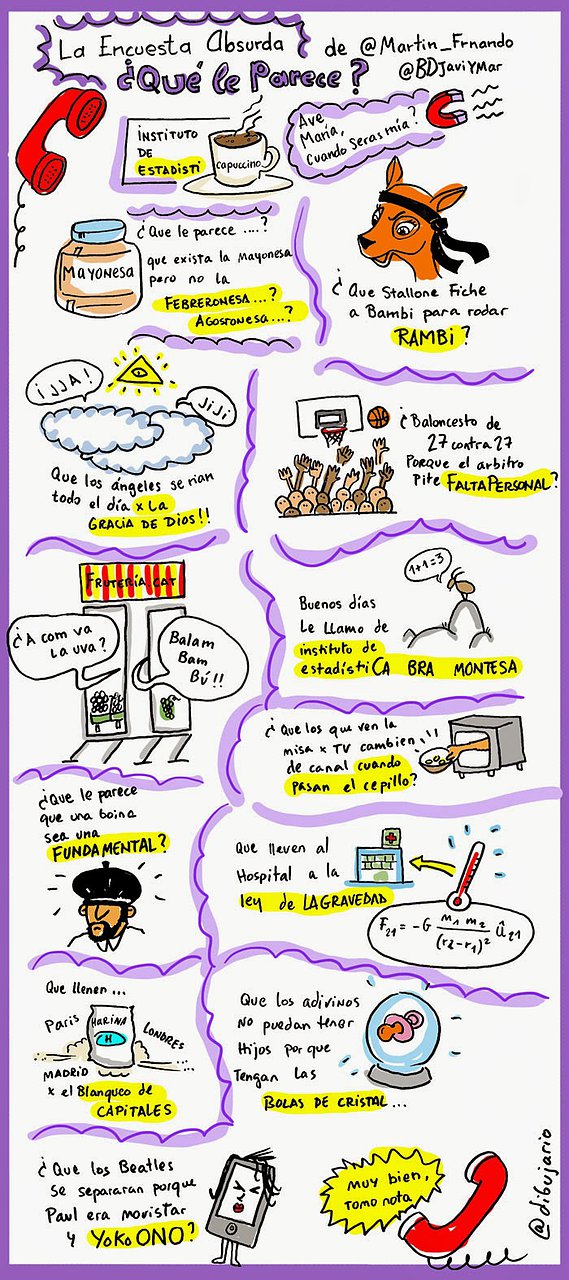 La Encuesta Absurda
¿Qué le Parece?
de @Martin_Frnando
@BDJaviYMar
INSTITUTO
DE
ESTADISTI
capuccino
Ave
María,
Cuando Seras mía?
MAYONESA
¿Que le parece ....?
que exista la mayonesa
pero no la
FEBRERONESA...?
AGOSTONESA...?
¿Que Stallone Fiche
a Bambi para rodar
RAMBI?
¡JJA!
JiJi
Que los ángeles se rian
todo el día x La
GRACIA DE DIOS!!
¿Baloncesto de
27 contra 27
Porque el arbitro
Pite FALTA PERSONAL?
FRUTERÍA CAT
¿A com va
La uva?
Balam
Bam
Bú!!
1+1=3
Buenos días
Le llamo de
instituto de
estadístiCA BRA MONTESA
¿Que los que ven la
misa x TV cambien
de canal cuando
pasan el cepillo?
¿Que le parece
que una boina
sea una
FUNDAMENTAL?
Que lleven al
Hospital a la
ley de LAGRAVEDAD
F21 = -G m1 m2 / (r2-r1)² û21
Que llenen ...
París
HARINA
H
LONDRES
MADRID
x el Blanqueo de
CAPITALES
Que los adivinos
No puedan tener
Hijos por que
Tengan las
BOLAS DE CRISTAL...
¿Que los Beatles
se separaran porque
Paul era movistar
y YoKo ONO?
Muy bien,
tomo nota
@dibujario